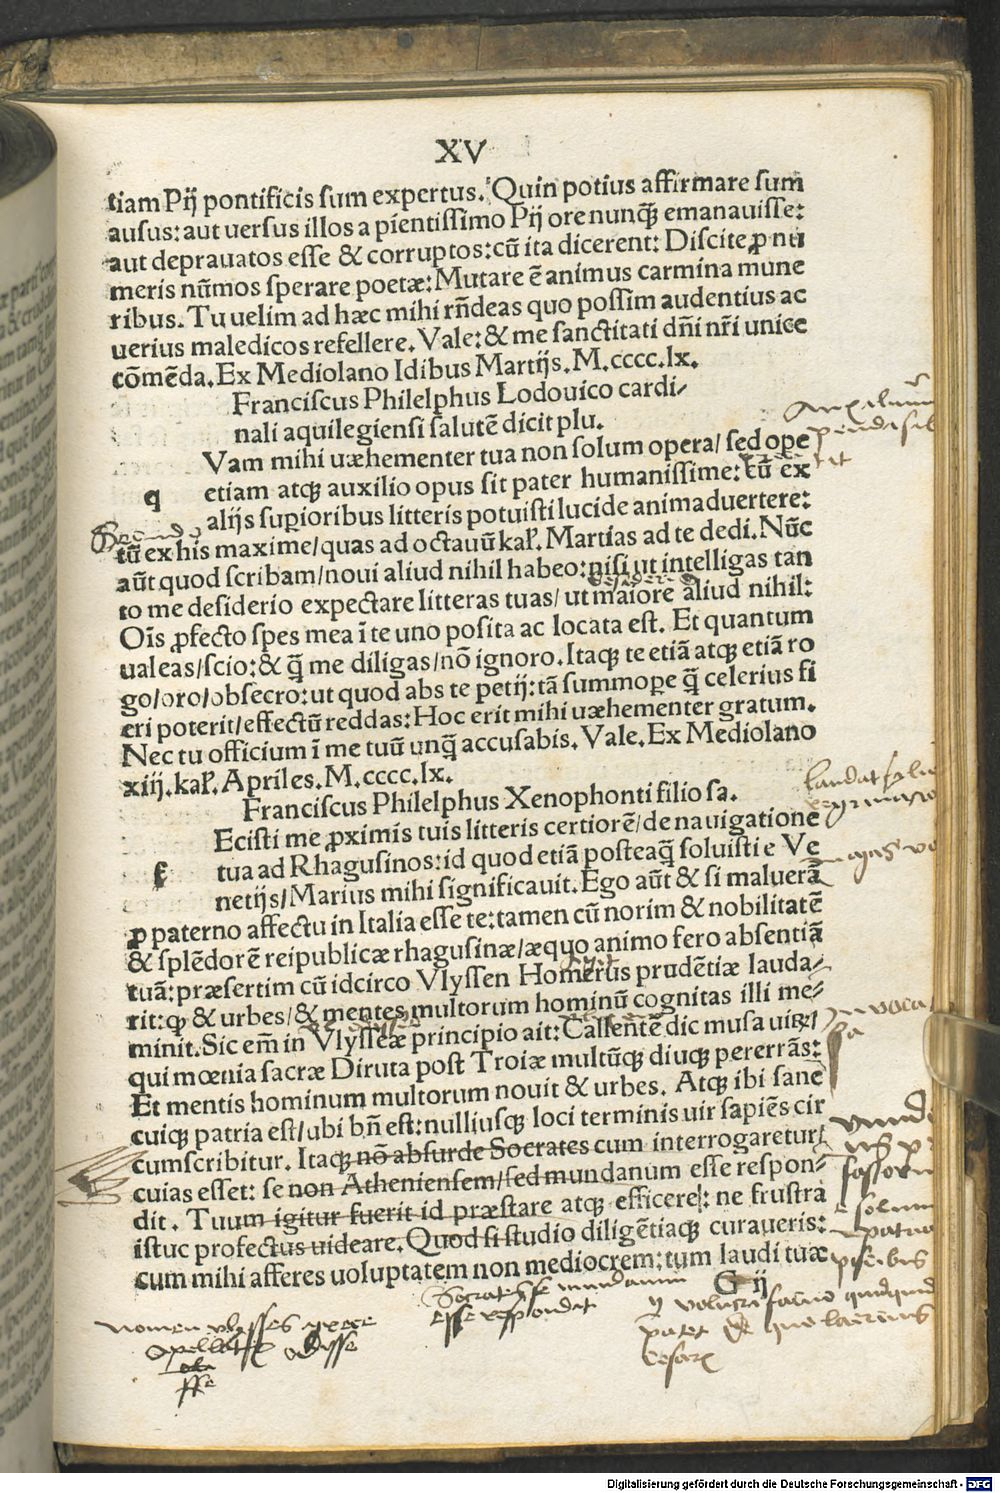 XV
tiam Pij pontificis sum expertus. Quin potius affirmare sum
ausus: aut uersus illos a pientissimo Pij ore nunq̃ emanauisse:
aut deprauatos esse & corruptos: cũ ita dicerent: Discite ꝓ nu
meris nũmos sperare poetæ: Mutare ẽ animus carmina mune
ribus. Tu uelim ad hæc mihi rñdeas quo possim audentius ac
uerius maledicos refellere. Vale: & me sanctitati dñi nr̃i unice
cõmẽda. Ex Mediolano Idibus Martijs. M.cccc.lx.
Franciscus Philelphus Lodouico cardi/
nali aquilegiensi salutẽ dicit plu.
Vam mihi uæhementer tua non solum opera/ sed ope
q etiam atqꝫ auxilio opus sit pater humanissime: cũ ex
alijs suꝑioribus litteris potuisti lucide animaduertere:
tũ ex his maxime/quas ad octauũ kal. Martias ad te dedi. Nũc
aũt quod scribam/noui aliud nihil habeo: nisi ut intelligas tan
to me desiderio expectare litteras tuas/ ut maiore aliud nihil:
Oĩs ꝓfecto spes mea ĩ te uno posita ac locata est. Et quantum
ualeas/scio: & q̃ me diligas/nõ ignoro. Itaqꝫ te etiã atqꝫ etiã ro
go/oro/obsecro: ut quod abs te petij: tã summoꝑe q̃ celerius fi
eri poterit/effectũ reddas: Hoc erit mihi uæhementer gratum.
Nec tu officium ĩ me tuũ unq̃ accusabis. Vale. Ex Mediolano
xiij. kal. Apriles. M.cccc.lx.
Franciscus Philelphus Xenophonti filio sa.
Ecisti me ꝓximis tuis litteris certiorẽ/de nauigatione
f tua ad Rhagusinos: id quod etiã posteaq̃ soluisti e Ve
netijs/Marius mihi significauit. Ego aũt & si maluerã
ꝓ paterno affectu in Italia esse te: tamen cũ norim & nobilitatẽ
& splẽdorẽ reipublicæ rhagusinæ/æquo animo fero absentiã
tuã: præsertim cũ idcirco Vlyssen Homerus prudẽtiæ lauda/
rit: ꝙ & urbes/& mentes multorum hominũ cognitas illi me/
minit. Sic em̃ in Vlysseæ principio ait: Callentẽ dic musa uiꝝ/
qui mœnia sacræ Diruta post Troiæ multũqꝫ diuqꝫ pererrãs:
Et mentis hominum multorum nouit & urbes. Atqꝫ ibi sane
cuiqꝫ patria est/ubi bñ est: nulliusqꝫ loci terminis uir sapiẽs cir
cumscribitur. Itaqꝫ nõ absurde Socrates cum interrogaretur/
cuias esset: se non Atheniensem/sed mundanum esse respon/
dit. Tuum igitur fuerit id præstare atqꝫ efficere: ne frustra
istuc profectus uideare. Quod si studio diligẽtiaqꝫ curaueris:
cum mihi afferes uoluptatem non mediocrem: tum laudi tuæ
G ij
Socrates se mundanum
esse respondat
nomen vlysses grece